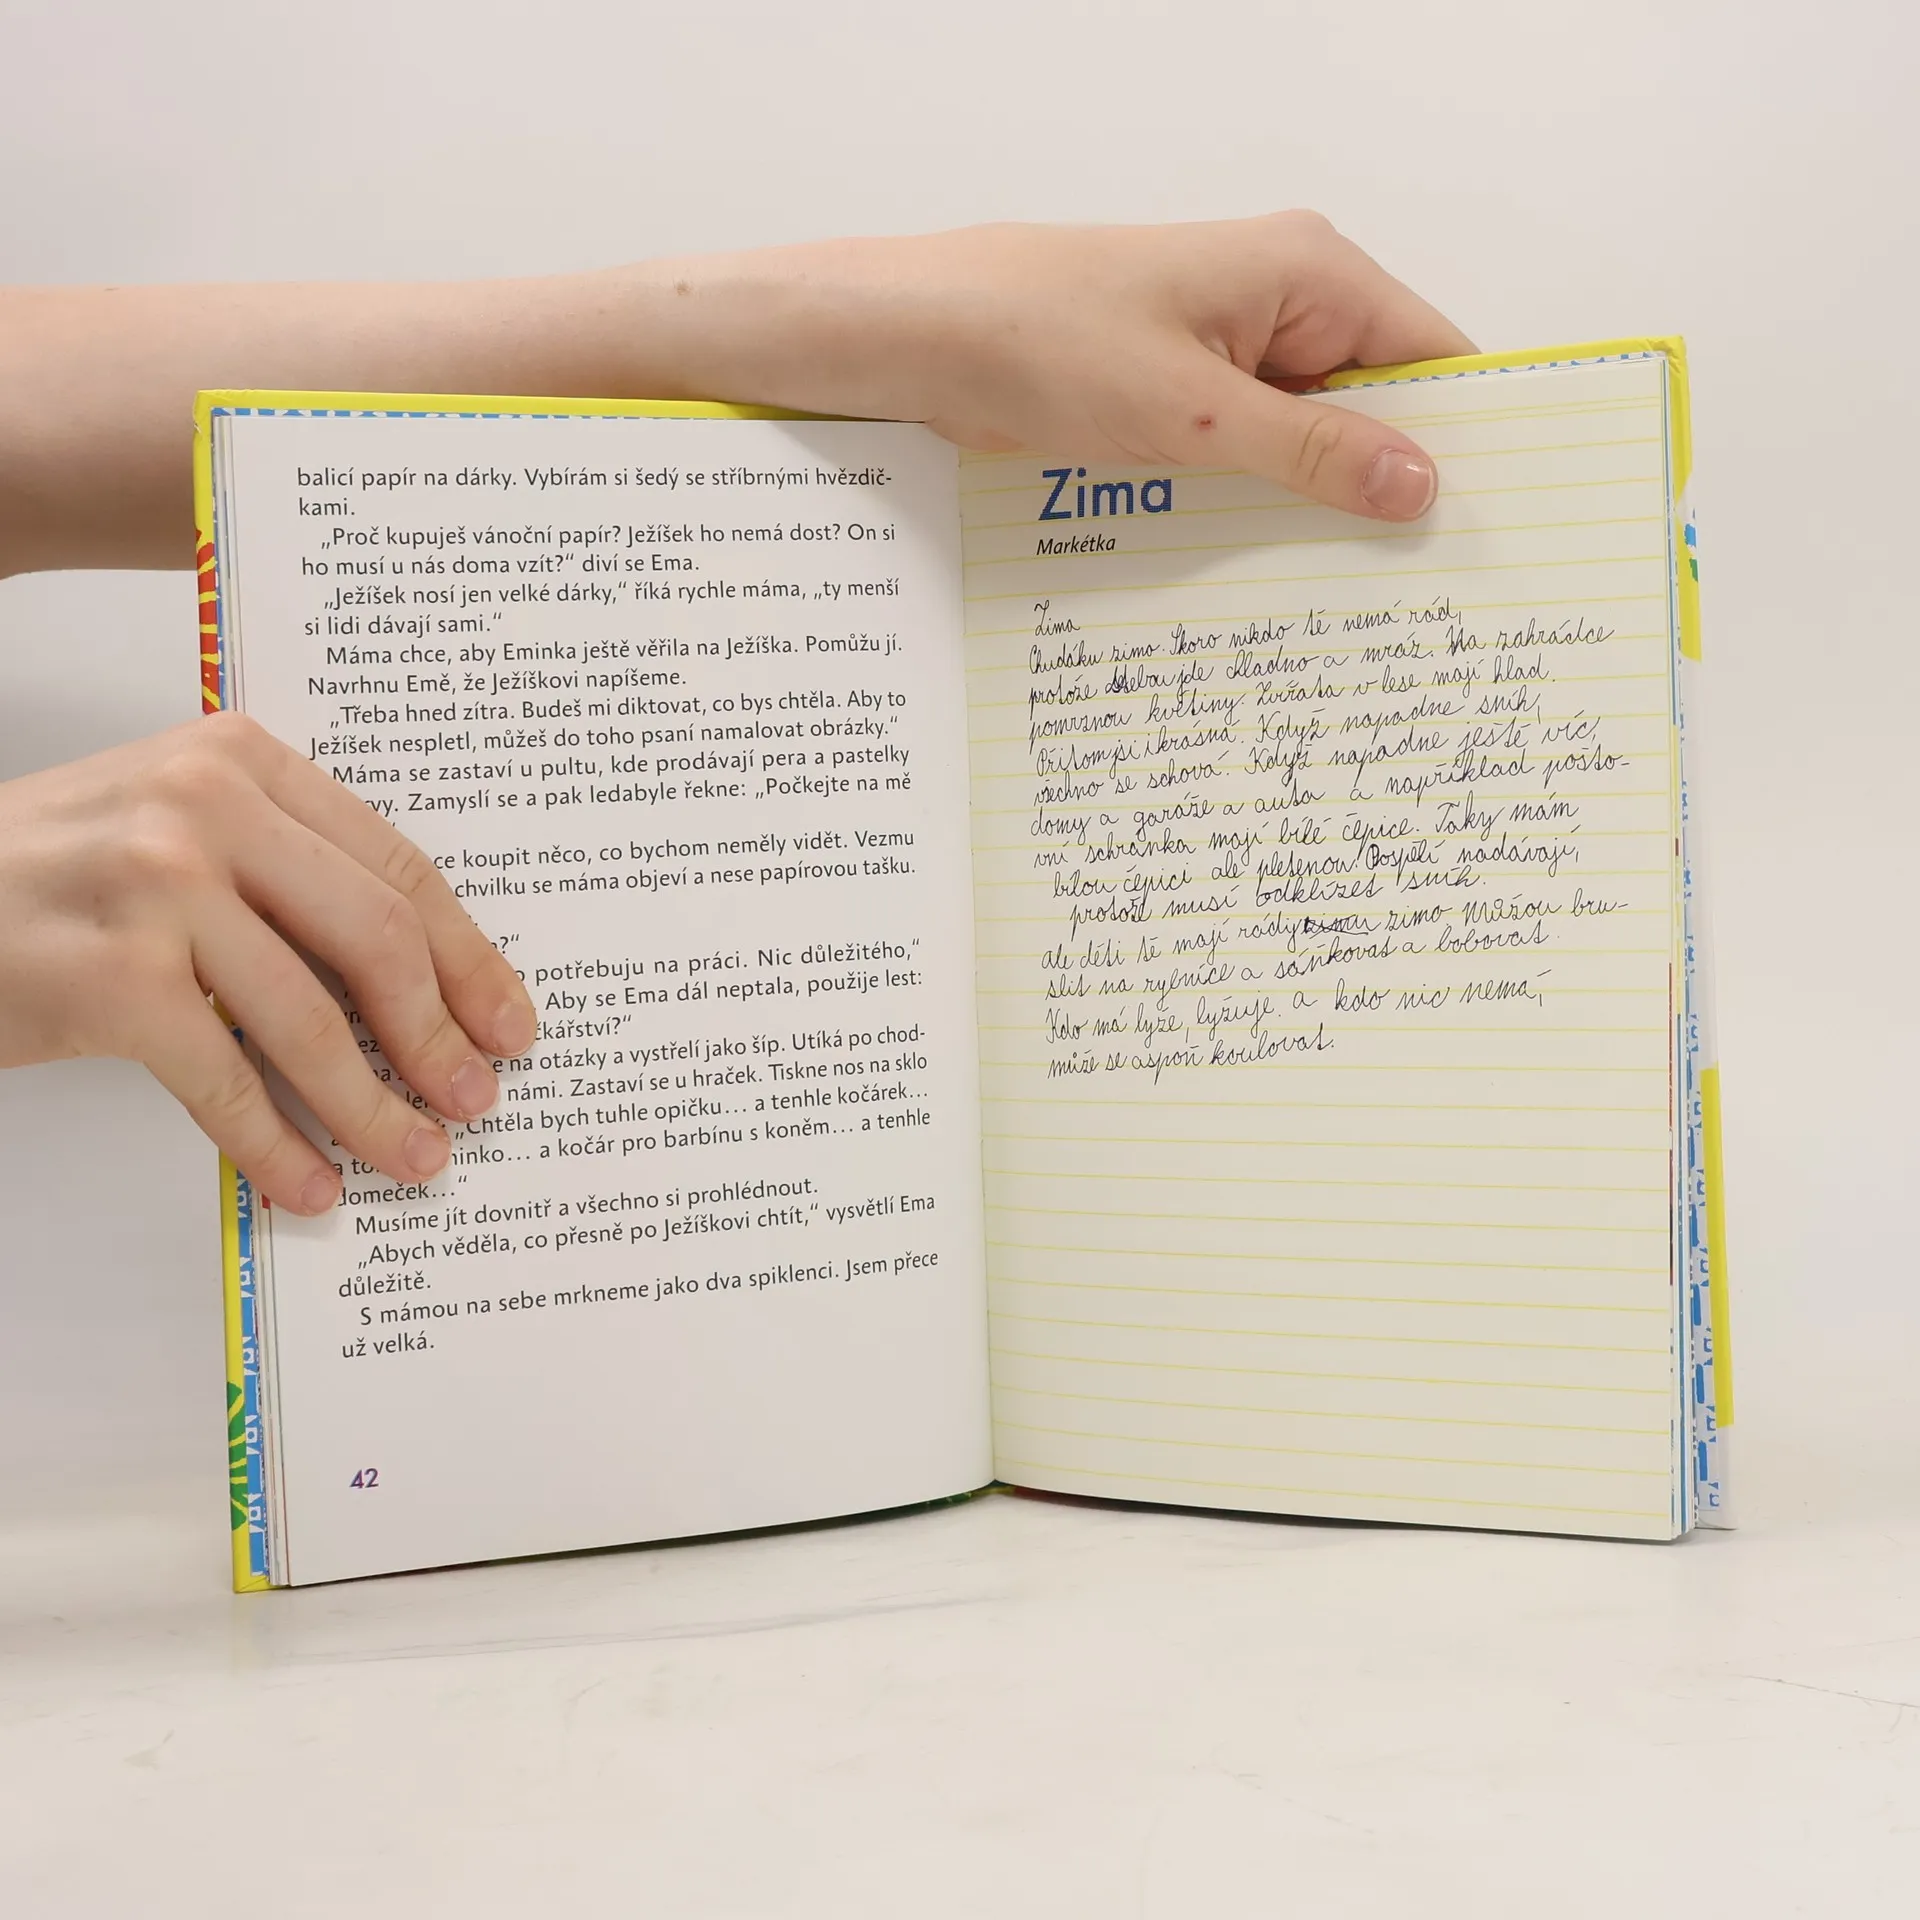 balicí papír na dárky. Vybírám si šedý se stříbrnými hvězdič-
kami.
„Proč kupuješ vánoční papír? Ježíšek ho nemá dost? On si
ho musí u nás doma vzít?“ diví se Ema.
„Ježíšek nosí jen velké dárky,“ říká rychle máma, „ty menší
si lidi dávají sami.“
Máma chce, aby Eminka ještě věřila na Ježíška. Pomůžu jí.
Navrhnu Emě, že Ježíškovi napíšeme.
„Třeba hned zítra. Budeš mi diktovat, co bys chtěla. Aby to
Ježíšek nespletl, můžeš do toho psaní namalovat obrázky.“
Máma se zastaví u pultu, kde prodávají pera a pastelky
vy. Zamyslí se a pak ledabyle řekne: „Počkejte na mě
koupit něco, co bychom neměly vidět. Vezmu
chvilku se máma objeví a nese papírovou tašku.
potřebuju na práci. Nic důležitého,“
Aby se Ema dál neptala, použije lest:
čkářství?“
na otázky a vystřelí jako šíp. Utíká po chod-
námi. Zastaví se u hraček. Tiskne nos na sklo
„Chtěla bych tuhle opičku... a tenhle kočárek...
a kočár pro barbínu s koněm... a tenhle
domeček...“
Musíme jít dovnitř a všechno si prohlédnout.
„Abych věděla, co přesně po Ježíškovi chtít,“ vysvětlí Ema
důležitě.
S mámou na sebe mrkneme jako dva spiklenci. Jsem přece
už velká.
42
Zima
Markétka
Zima
Chudáku zimo. Skoro nikdo tě nemá rád,
protože sebou jde chladno a mráz. Na zahrádce
pomrznou květiny. Zvířata v lese mají hlad.
Přitom jsi i krásná. Když napadne sníh,
všechno se schová. Když napadne ještě víc,
domy a garáže a auta a například pošto-
vní schránka mají bílé čepice. Taky mám
bílou čepici ale pletenou. Dospělí nadávají,
protože musí odklízet sníh.
ale děti tě mají rády zimo Můžou bru-
slit na rybníce a sáňkovat a bobovat.
Kdo má lyže, lyžuje. a kdo nic nemá,
může se aspoň koulovat.